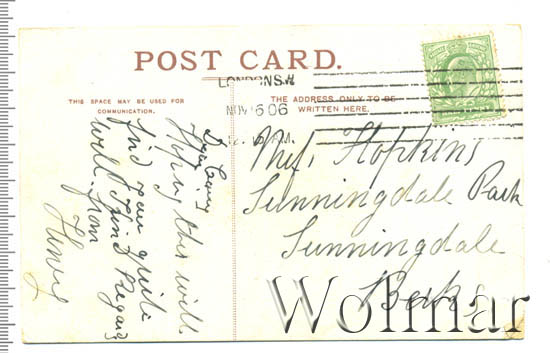 POST CARD.
LONDON S.W
NOV 6 06
THIS SPACE MAY BE USED FOR
COMMUNICATION.
THE ADDRESS ONLY TO BE
WRITTEN HERE.
Dear
Hoping this will
find you quite
well Kind Regards
from
Henry
Miss Hopkins
Sunningdale Park
Sunningdale
Berks
Wolmar